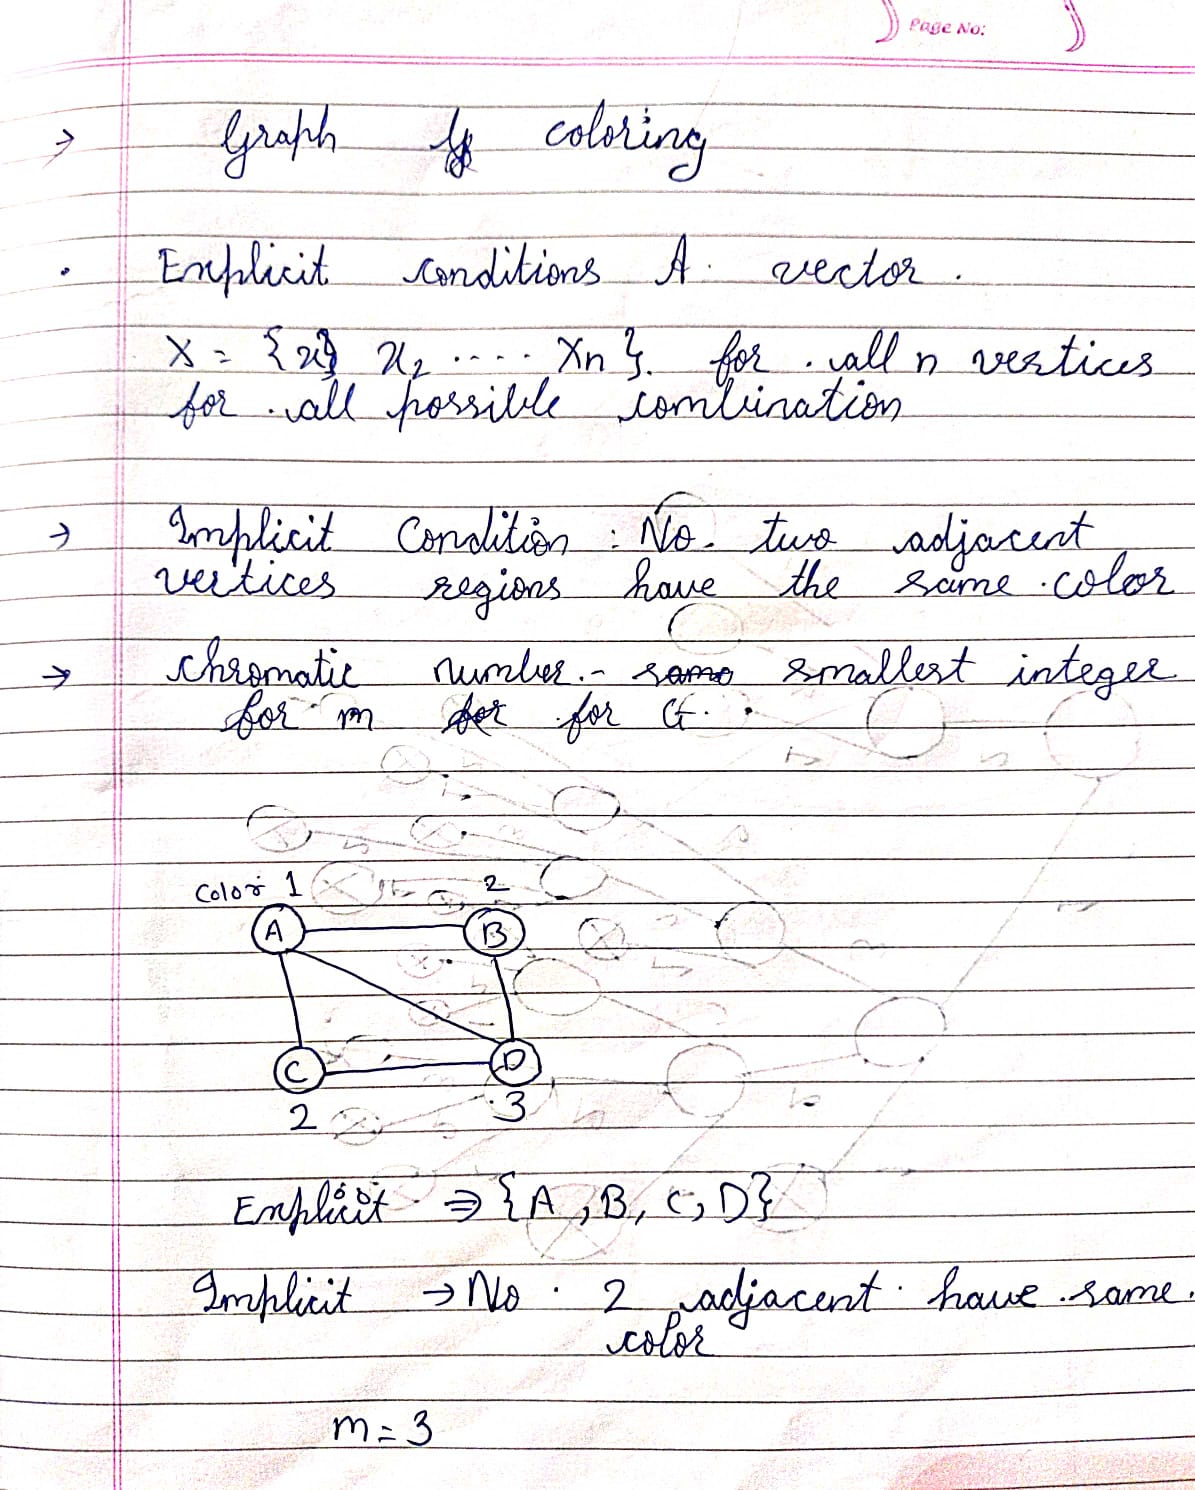 Page No:
→ Graph coloring
. Explicit conditions A vector.
X = {x1 x2 .... Xn}. for all n vertices
for all possible combination
→ Implicit Condition : No. two adjacent
vertices regions have the same color
→ Chromatic number - same smallest integer
for m for for G.
Color 1 2
A B
C D
2 3
Explicit ⇒ {A, B, C, D}
Implicit → No. 2 adjacent have same.
color
m = 3